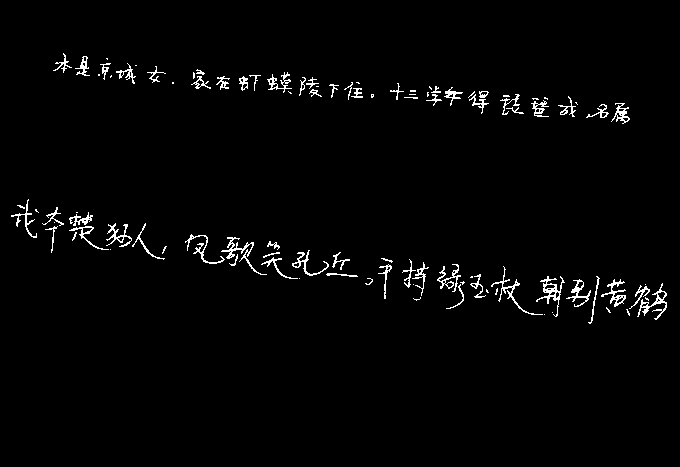 本是京城女,家在虾蟆陵下住。十三学得琵琶成,名属
我本楚狂人,凤歌笑孔丘。手持绿玉杖朝别黄鹤